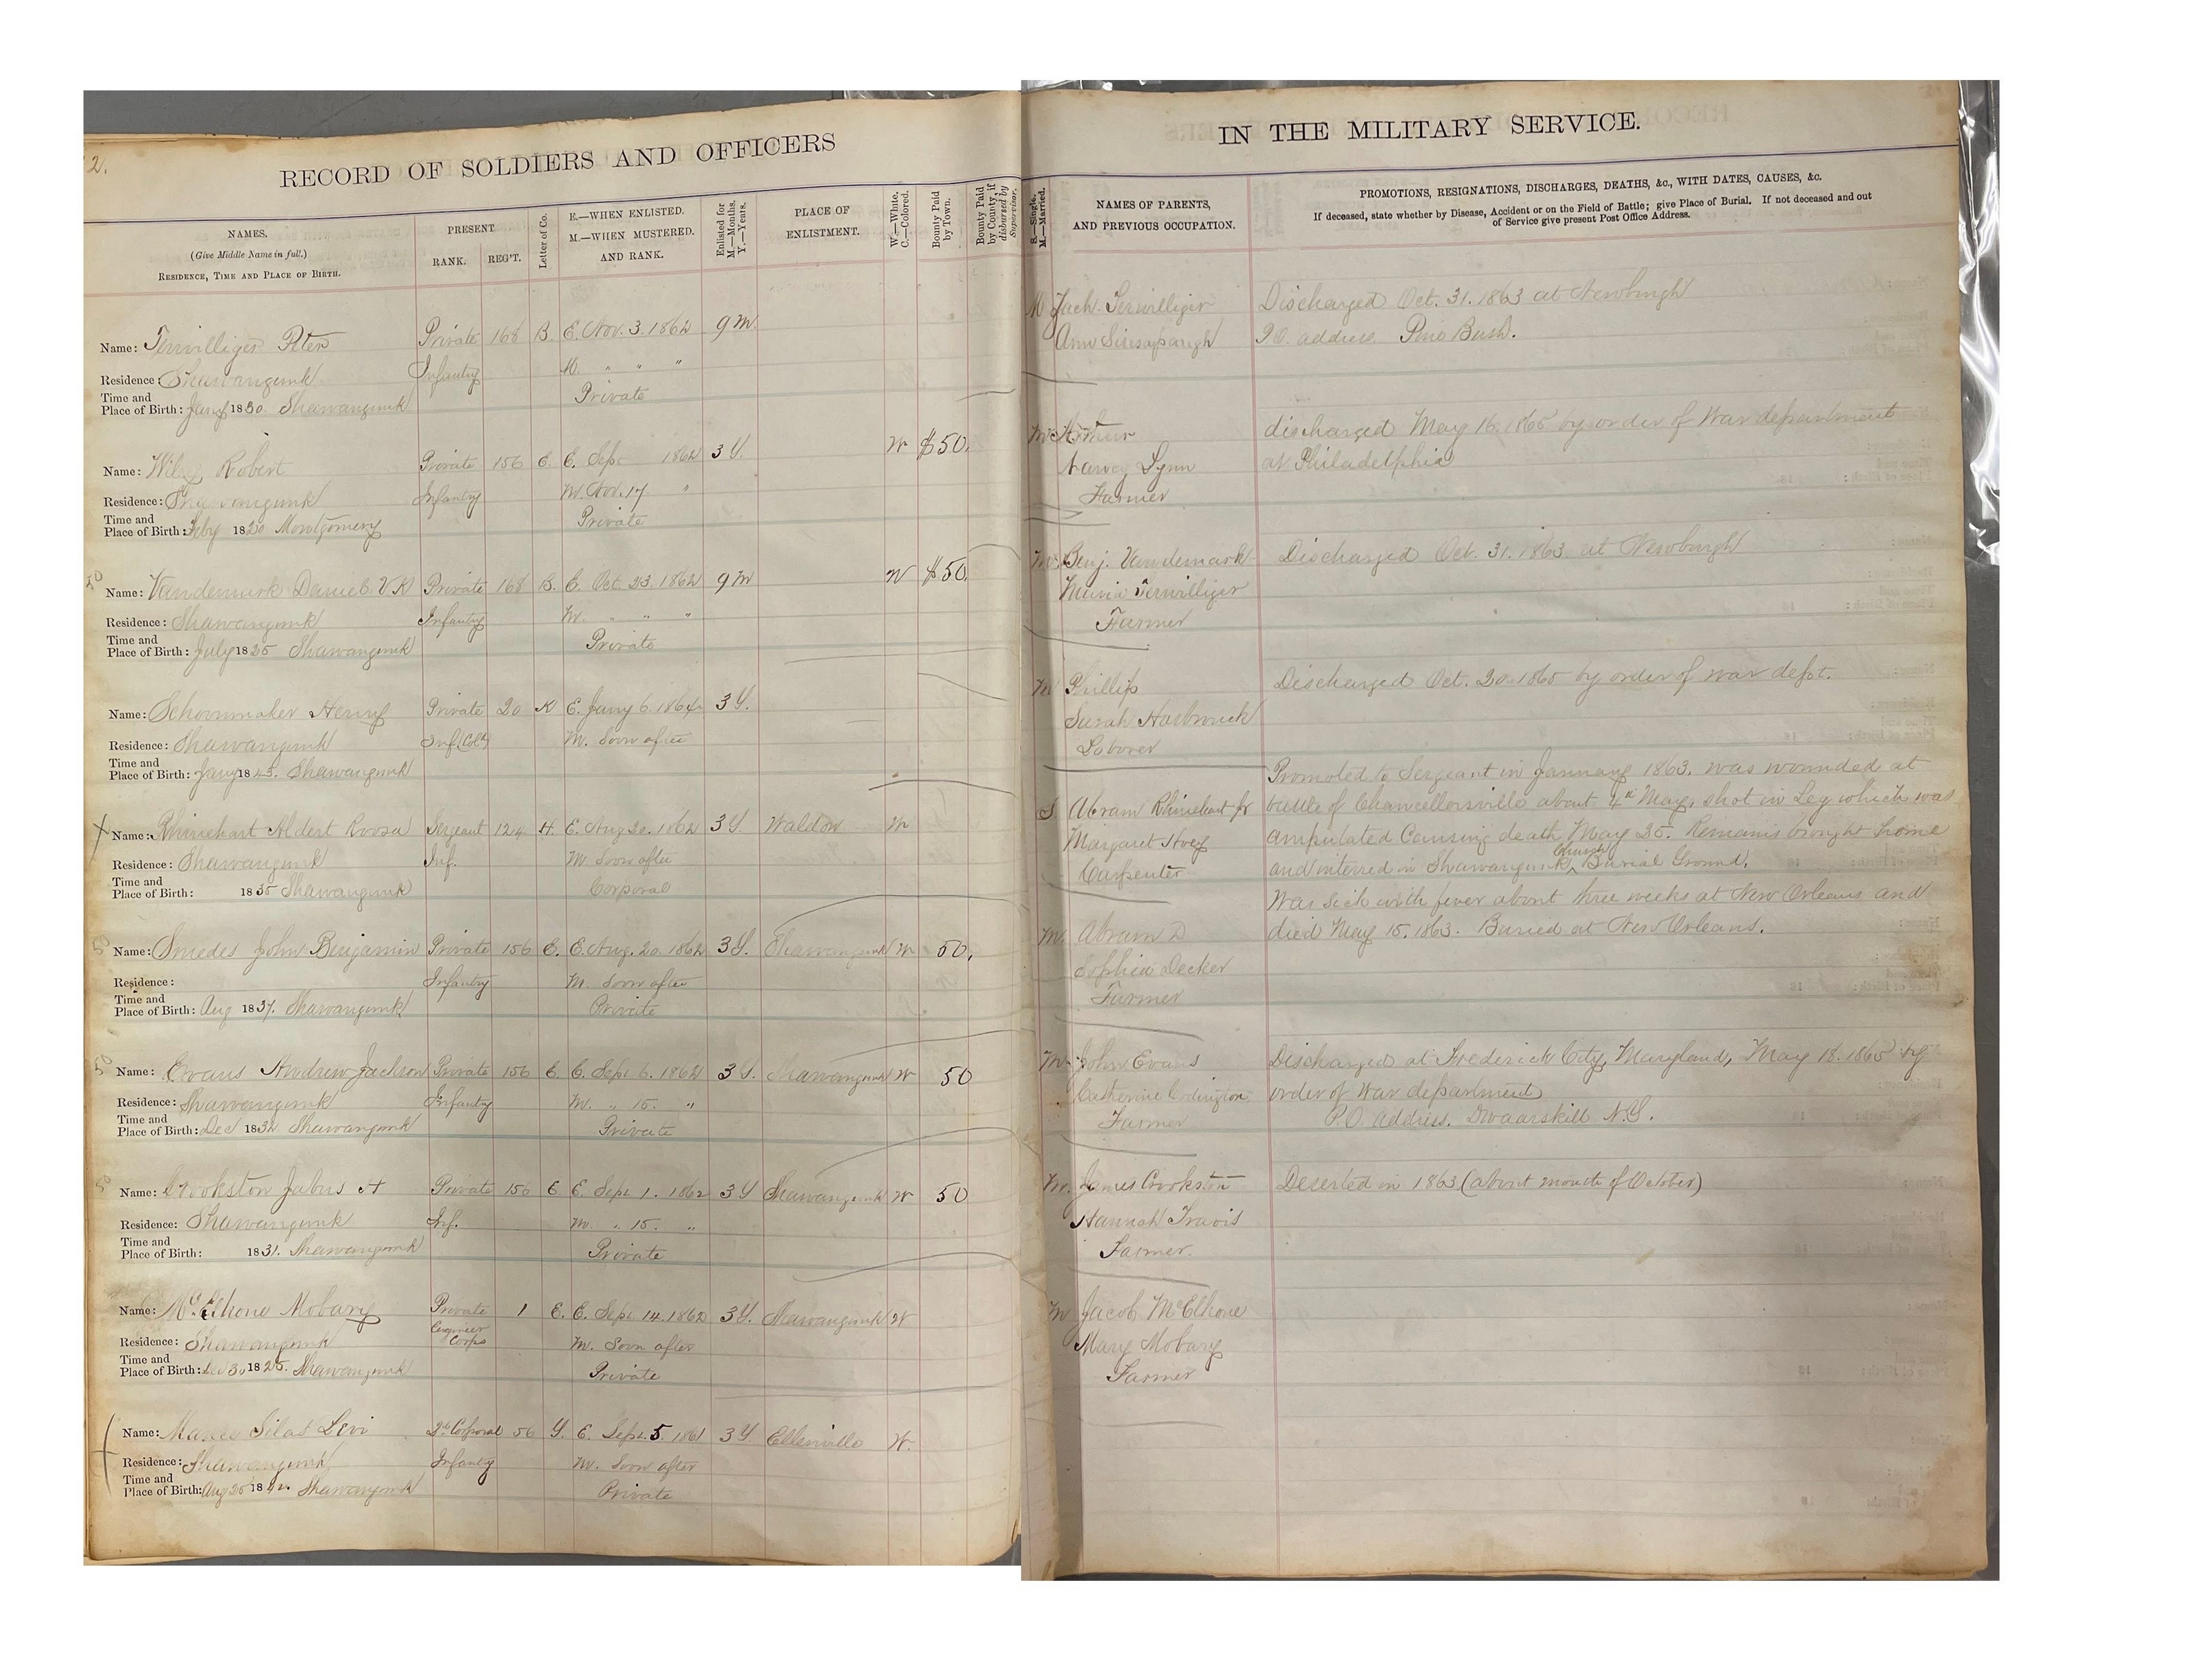 2.
RECORD OF SOLDIERS AND OFFICERS
NAMES.
(Give Middle Name in full.)
RESIDENCE, TIME AND PLACE OF BIRTH.
PRESENT
RANK. REG'T.
Letter of Co.
E.—WHEN ENLISTED.
M.—WHEN MUSTERED.
AND RANK.
Enlisted for
M.—Months.
Y.—Years.
PLACE OF
ENLISTMENT.
W.—White.
C.—Colored.
Bounty Paid
by Town.
Bounty Paid
by County, if
disbursed by
Supervisor.
Name: Terwilliger Peter Private 168 B. E. Nov. 3. 1862 9 M.
Residence: Shawangunk Infantry M. " " "
Time and
Place of Birth: 1830. Shawangunk Private
Name: Robert Private 156 E. E. Sep. 1862 3 Y. W $50.
Residence: Shawangunk Infantry M. Nov. 17 "
Time and
Place of Birth: Feby 1820 Montgomery Private
50
Name: Vandemark Daniel V K Private 168 B. E. Oct. 23. 1862 9 M W $50.
Residence: Shawangunk Infantry M. " " "
Time and
Place of Birth: July 1825 Shawangunk Private
Name: Schoonmaker Henry Private 20 K E. Jany 6. 1864 3 Y.
Residence: Shawangunk Inf. (Cold) M. Soon after
Time and
Place of Birth: Jany 1843. Shawangunk
X Name: Rhinehart Aldert Roosa Sergeant 124 H. E. Aug 20. 1862 3 Y Walden W
Residence: Shawangunk Inf. M. Soon after
Time and
Place of Birth: 1835 Shawangunk Corporal
50
Name: Smedes John Benjamin Private 156 E. E. Aug. 20. 1862 3 Y. Shawangunk W 50.
Residence: Infantry M. Soon after
Time and
Place of Birth: Aug 1837. Shawangunk Private
50
Name: Evans Andrew Jackson Private 156 E. E. Sept 6. 1862 3 Y. Shawangunk W 50
Residence: Shawangunk Infantry M. " 15. "
Time and
Place of Birth: Dec 1832 Shawangunk Private
50
Name: Crookston Jabus A Private 156 E E. Sept 1. 1862 3 Y Shawangunk W 50
Residence: Shawangunk Inf. M. " 15. "
Time and
Place of Birth: 1831. Shawangunk Private
Name: McElhone Mobary Private 1 E. E. Sept. 14. 1862 3 Y. Shawangunk W
Engineer
Corps
Residence: Shawangunk M. Soon after
Time and
Place of Birth: Dec 30 1825. Shawangunk Private
Name: Silas Levi 2d Corporal 56 G. E. Sept. 5. 1861 3 Y Ellenville W.
Residence: Shawangunk Infantry M. Soon after
Time and
Place of Birth: Aug 25 Shawangunk Private
IN THE MILITARY SERVICE.
S.—Single.
M.—Married.
NAMES OF PARENTS,
AND PREVIOUS OCCUPATION.
PROMOTIONS, RESIGNATIONS, DISCHARGES, DEATHS, &c., WITH DATES, CAUSES, &c.
If deceased, state whether by Disease, Accident or on the Field of Battle; give Place of Burial. If not deceased and out
of Service give present Post Office Address.
M Zach. Terwilliger Discharged Oct. 31. 1863 at Newburgh
Ann Sinsapaugh P.O. address Pine Bush.
M Arthur discharged May 16. 1865 by order of War department
Lynn at Philadelphia
Farmer
M Benj. Vandemark Discharged Oct. 31. 1863 at Newburgh
Maria Terwilliger
Farmer
M Phillip Discharged Oct. 20. 1865 by order of War dept.
Sarah Hasbrouck
Laborer
Promoted to Sergeant in January 1863. was wounded at
S. Abram Rhinehart Jr battle of Chancellorsville about 4th May, shot in Leg which was
Margaret Hoey amputated Causing death May 25. Remains brought home
Carpenter and interred in Shawangunk Church Burial Ground.
Was sick with fever about three weeks at New Orleans and
M. Abram D died May 15. 1863. Buried at New Orleans.
Sophia Decker
Farmer
M. John Evans Discharged at Frederick City, Maryland, May 18. 1865 by
Catherine Codington order of War department
Farmer P.O. Address. Dwaarskill N.Y.
M. James Crookston Deserted in 1863 (about month of October)
Hannah Travis
Farmer.
M Jacob McElhone
Mary Mobary
Farmer